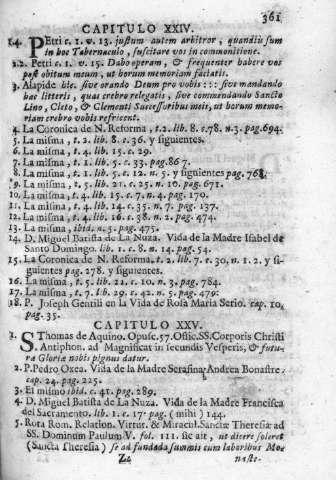 361
CAPITULO XXIV.
1.4. PEtri c. 1. v. 13. justum autem arbitror, quandiu sum
in hoc Tabernaculo, suscitare vos in commonitione.
2.2. Petri c. 1. v. 15. Dabo operam, & frequenter habere vos
post obitum meum, ut horum memoriam faciatis.
3. Alapide hic. sive orando Deum pro vobis ::: sive mandando
hac litteris, quas crebro relegatis, sive commendando Sancto
Lino, Cleto, & Clementi Successoribus meis, ut horum memo-
riam crebro vobis refricent.
4. La Coronica de N. Reforma, t. 2. lib. 8. c. 78. n. 3. pag. 694.
5. La misma, t. 2. lib. 8. c. 36. y siguientes.
6. La misma, t. 4. lib. 15. c. 29.
7. La misma, t. 1. lib. 5. c. 33. pag. 867.
8. La misma, t. 1. lib. 5. c. 12. n. 5. y siguientes pag. 768.
9. La misma, t. 5. lib. 21. c. 25. n. 10. pag. 671.
10. La misma, t. 4. lib. 15. c. 7. n. 4. pag. 170.
11. La misma, t. 4. lib. 14. c. 35. n. 7. pag. 137.
12. La misma, t. 4. lib. 16. c. 38. n. 2. pag. 474.
13. La misma, ibid. n. 5. pag. 475.
14. D. Miguel Batista de La Nuza. Vida de la Madre Isabel de
Santo Domingo. lib. 1. c. 8. n. 14. pag. 54.
15. La Coronica de N. Reforma. t. 2. lib. 7. c. 30. n. 1. 2. y si-
guientes pag. 278. y siguientes.
16. La misma, t. 5. lib. 22. c. 10. n. 3. pag. 784.
17. La misma, t. 7. lib. 29. c. 42. n. 5. pag. 479.
18. P. Joseph Gentili en la Vida de Rosa Maria Serio. cap. 10.
pag. 35.
CAPITULO XXV.
1. SThomas de Aquino. Opusc. 57. Offic. SS. Corporis Christi
Antiphon. ad Magnificat in secundis Vesperis, & futu-
ra Gloriæ nobis pignus datur.
2. P. Pedro Oxea. Vida de la Madre Serafina Andrea Bonastre.
cap. 24. pag. 225.
3. El mismo ibid. c. 41. pag. 289.
4. D. Miguel Batista de La Nuza. Vida de la Madre Francisca
del Sacramento. lib. 1. c. 17. pag. (mihi) 144.
5. Rota Rom. Relation. Virtut. & Miracul. Sanctæ Theresiæ ad
SS. Dominum Paulum V. fol. 111. sic ait, ut dicere soleret
(Sancta Theresia) se ad fundada summis cum laboribus Mo-
Zz
naste-